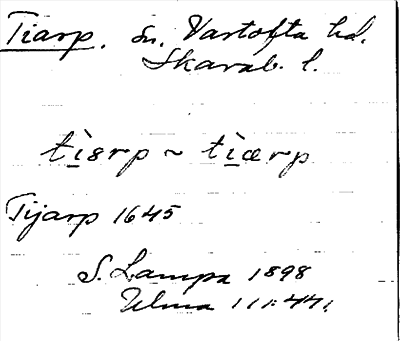 Tiarp. sn. Vartofta hd.
Skarab. l.
tìsrp ~ tìærp
Tijarp 1645
S. Lampa 1898
Ulma 111:44.